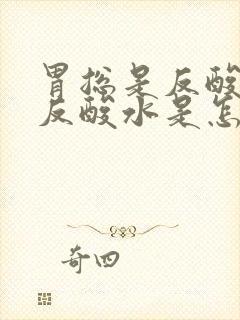 胃总是反酸
反酸水是怎
奇四